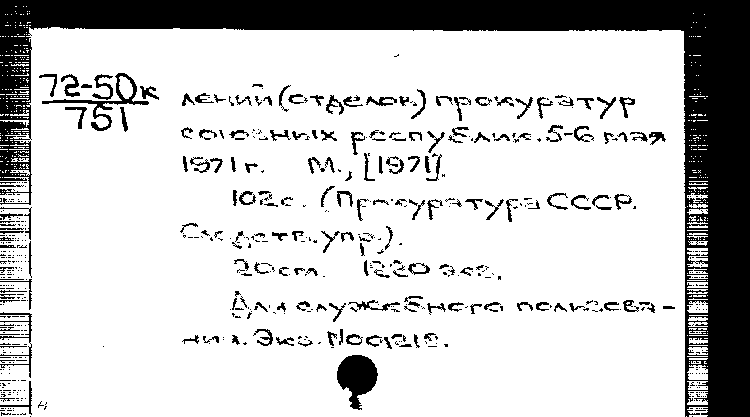 72-50к
751
лений (отделов) прокуратур
союзных республик. 5-6 мая
1971 г. М., [1971].
102 с. (Прокуратура СССР.
Следств. упр.).
20 см. 1220 экз.
Для служебного пользова-
ния. Экз. №001218.